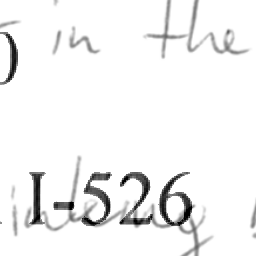 ) in the
I-526